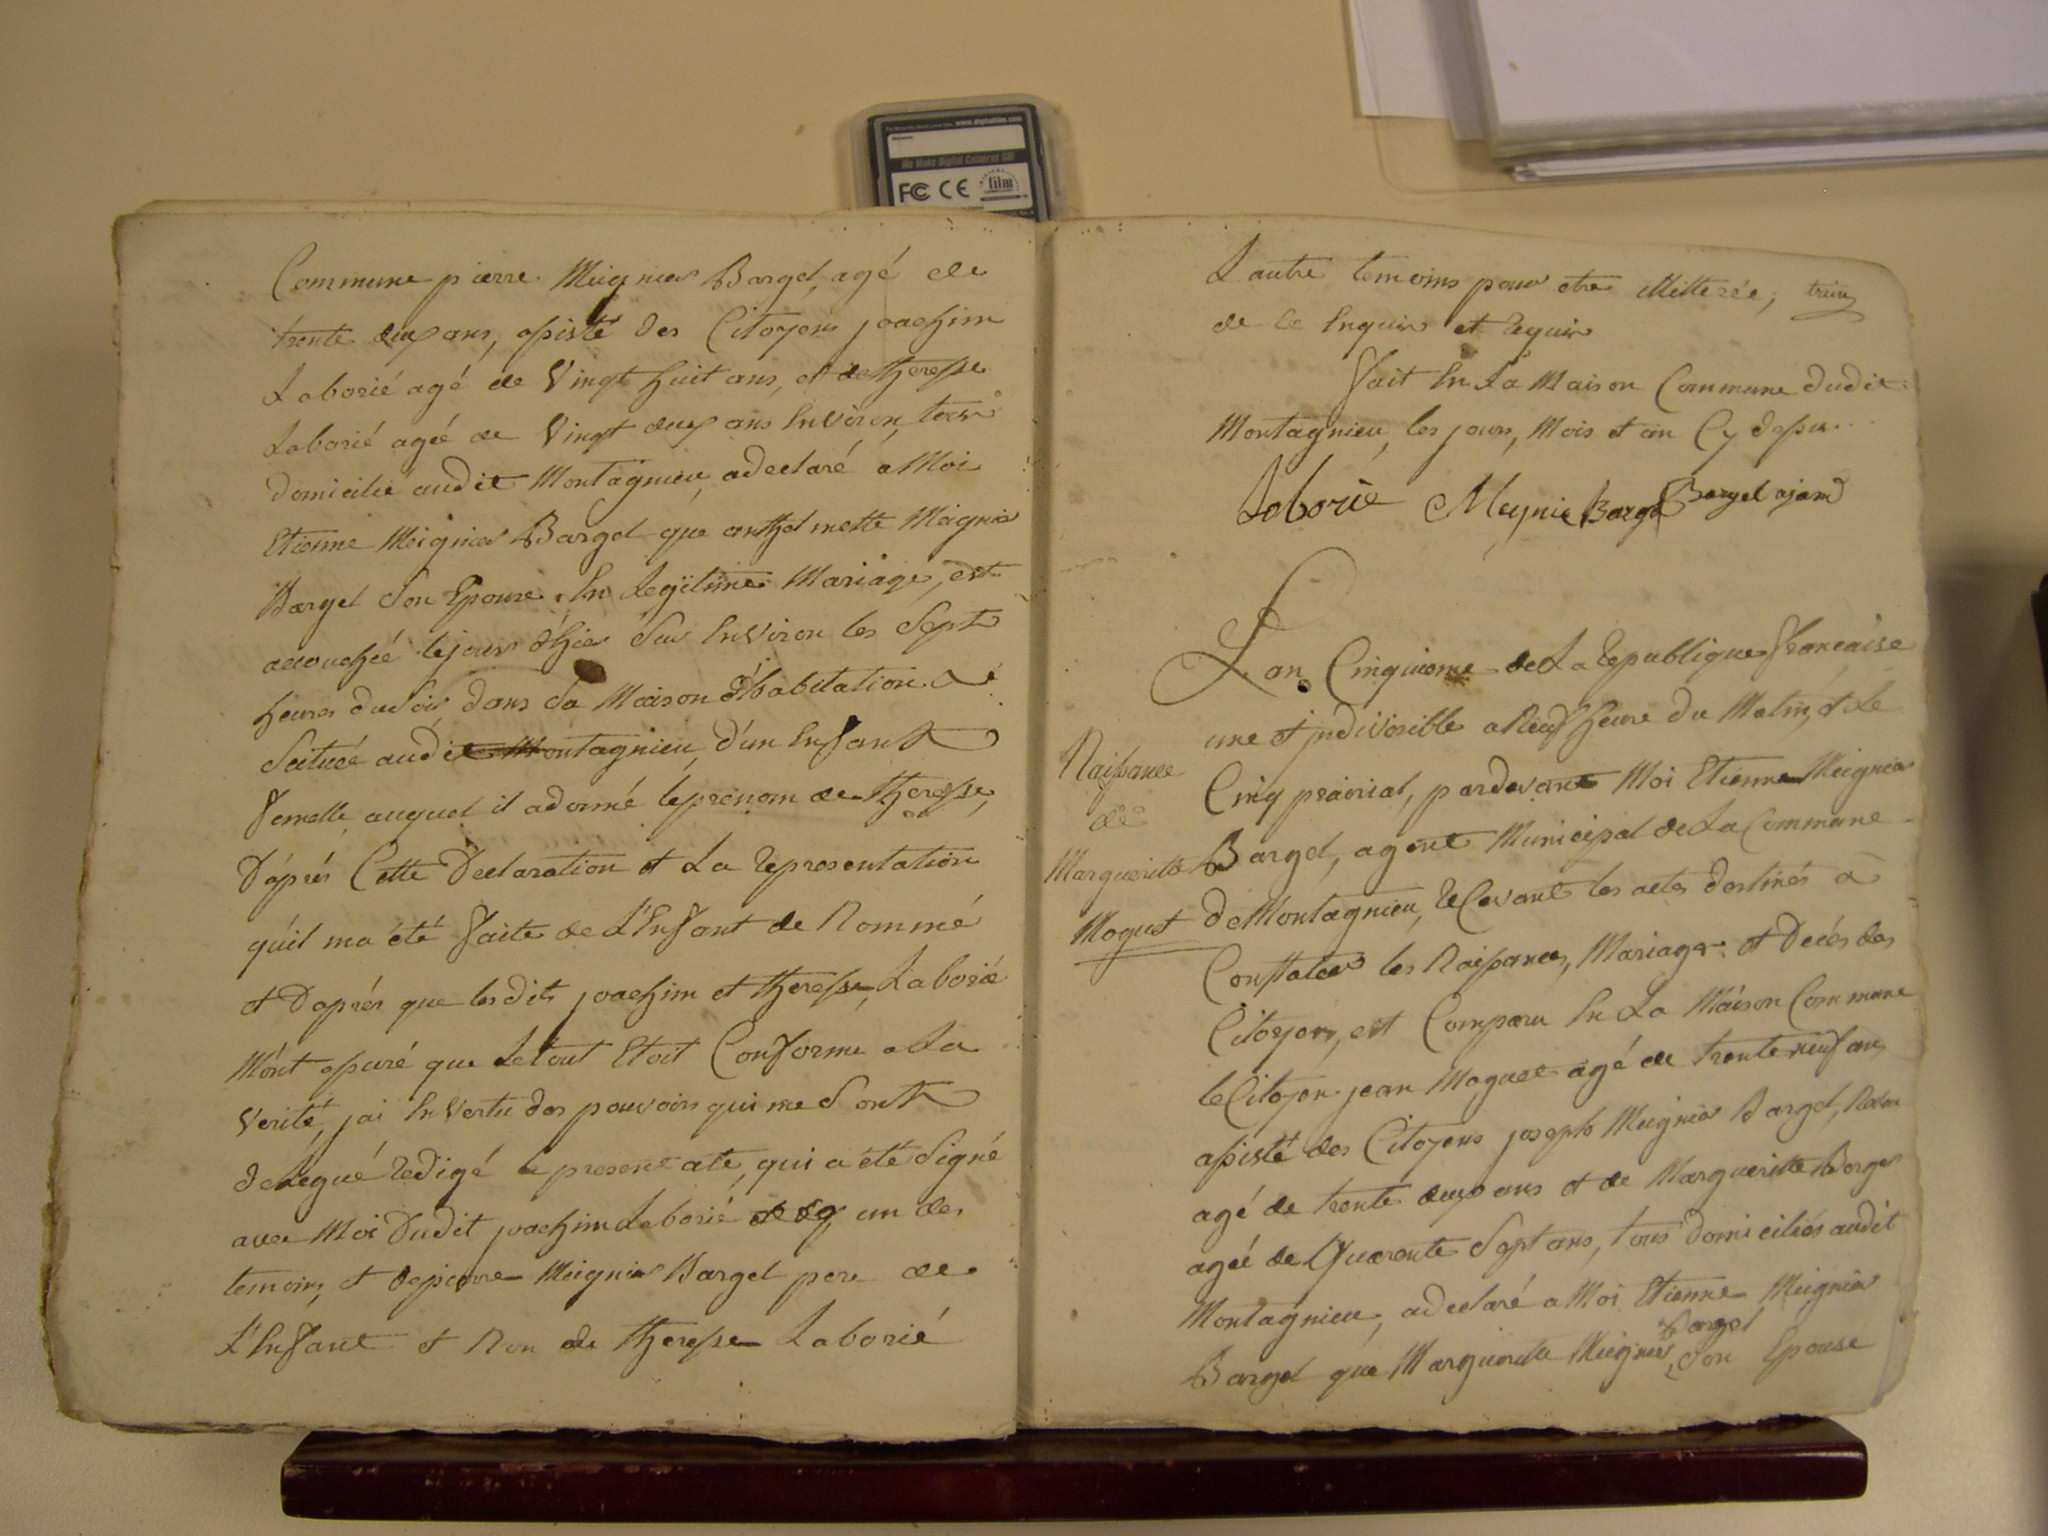 www.digitalfilm.com
We Make Digital Cameras GO!
FC CE film
Commune pierre Meignier Bargel, agé de
trente deux ans, assisté des Citoyens joachim
Laborié agé de Vingt huit ans, et de theresse
Laborié agée de Vingt deux ans Environ, tous
domicilié audit Montagnieu, adeclaré a Moi
Etienne Meignier Bargel que anthelmette Meignier
Bargel Son Epouse En Legitime Mariage, est
accouchée lejour d'hier Sur Environ les Sept
heures duSoir dans Sa Maison d'habitation
Scituée audit Montagnieu, d'un Enfant
femelle auquel il adonné leprenom de theresse,
D'aprés Cette Declaration et La Representation
qu'il ma été faite de L'Enfant de Nommé
et Daprés que lesdits joachim et theresse Laborié
M'ont assuré que Letout Etoit Conforme aLa
Verité, jai En Vertu des pouvoirs qui me Sont
deLegué Redigé le present acte, qui a été Signé
avec Moi Dudit joachim Laborié un des
temoins, et depierre Meignier Bargel pere de
L'Enfant et Non de theresse Laborié
L'autre temoins pour etre illitterée,
de ce Enquis et Requis
fait En La Maison Commune dudit
Montagnieu, les jours, Mois et an Cy dessu
Laborié Meynie Bargel Bargel ajant
L'an Cinquieme deLa Republique francaise
une et jndivisible a Neuf heure du Matin, et Le
Cinq prairial, pardevant Moi Etienne Meignier
Bargel, agent Municipal deLa Commune
deMontagnieu, ReCevant les actes destinés à
Constater les Naissances, Mariages et Decés des
Citoyens, est Comparu En La Maison Commune
leCitoyen jean Moguet agé de trente neuf ans,
assisté des Citoyens joseph Meignier Bargel,
agé de trente deux ans et de Margueritte Borge
agée de Quarente Sept ans, tous domiciliés audit
Montagnieu, adeclaré a Moi Etienne Meignier
Bargel que Margueritte Meignier Bargel Son Epouse
Naissance
de
Margueritte
Moguet